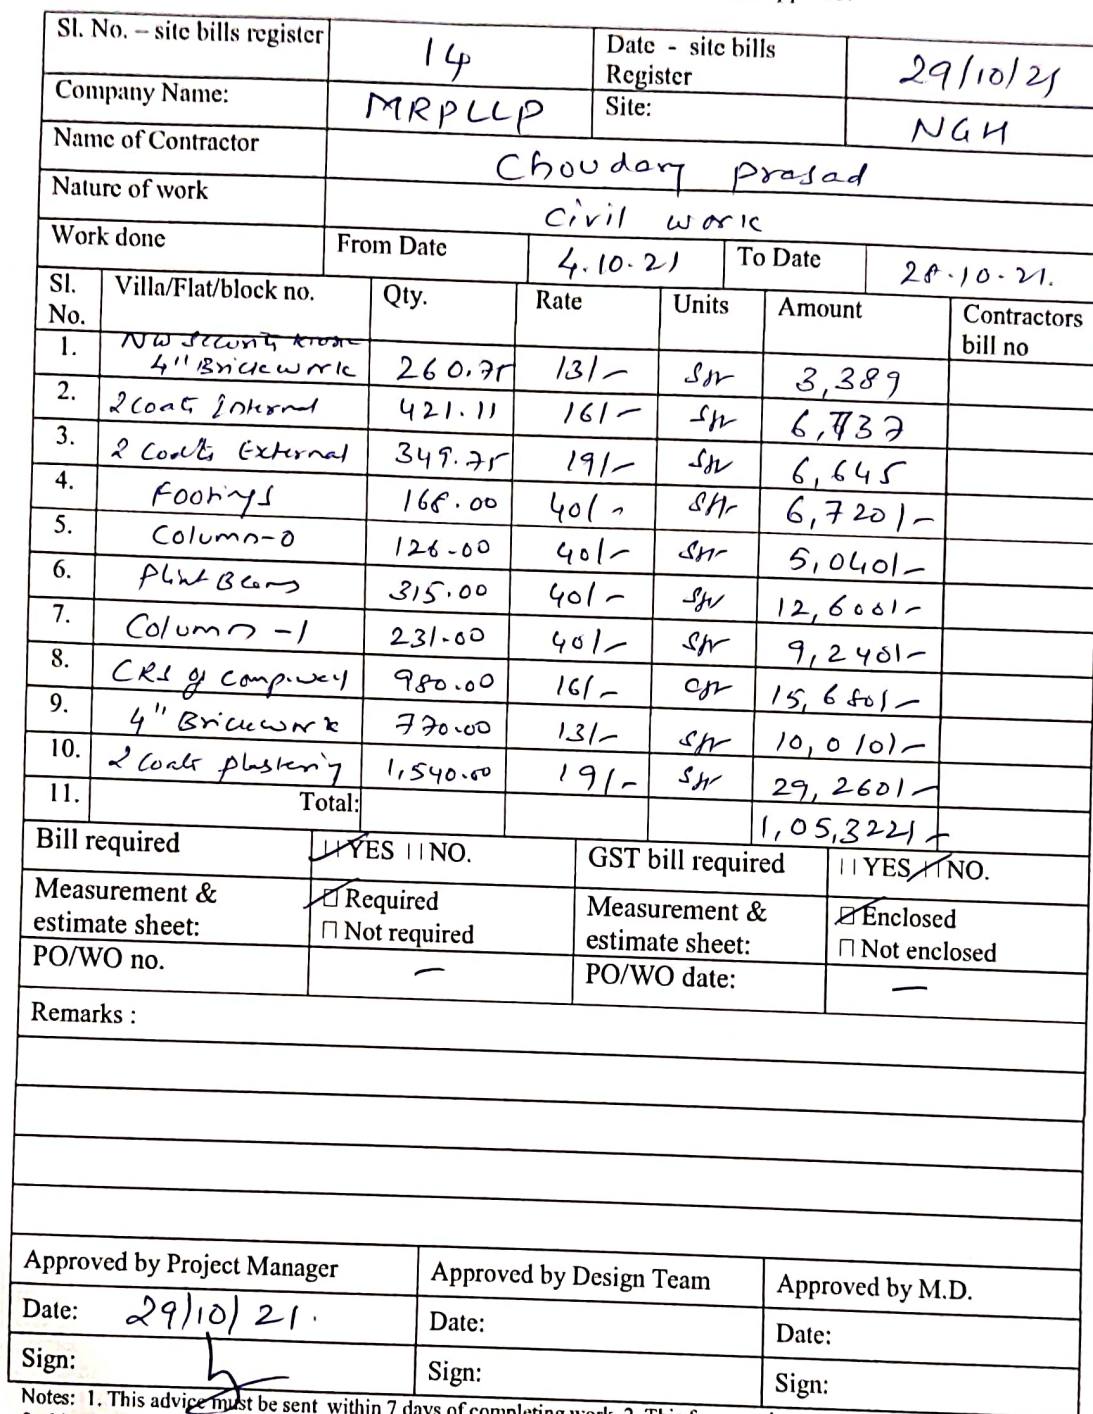 Sl. No. – site bills register 14 Date - site bills Register 29/10/21
Company Name: MRPLLP Site: NGH
Name of Contractor Choudary Prasad
Nature of work Civil work
Work done From Date 4.10.21 To Date 28.10.21.
Sl. No. Villa/Flat/block no. Qty. Rate Units Amount Contractors bill no
NW Security Kiosk
1. 4" Brickwork 260.75 13/- Sft 3,389
2. 2 Coats Internal 421.11 16/- Sft 6,737
3. 2 Coats External 349.75 19/- Sft 6,645
4. Footings 168.00 40/- Sft 6,720/-
5. Column-0 126-00 40/- Sft 5,040/-
6. Plint Beams 315.00 40/- Sft 12,600/-
7. Column -1 231-00 40/- Sft 9,240/-
8. CRS of comp.wall 980.00 16/- Cft 15,680/-
9. 4" Brickwork 770.00 13/- Sft 10,010/-
10. 2 Coats plastering 1,540.00 19/- Sft 29,260/-
11. Total: 1,05,322/-
Bill required YES NO. GST bill required YES NO.
Measurement & estimate sheet: Required Measurement & estimate sheet: Enclosed
Not required Not enclosed
PO/WO no. – PO/WO date: –
Remarks :
Approved by Project Manager Approved by Design Team Approved by M.D.
Date: 29/10/21. Date: Date:
Sign: Sign: Sign:
Notes: 1. This advice must be sent within 7 days of completing work. 2. This